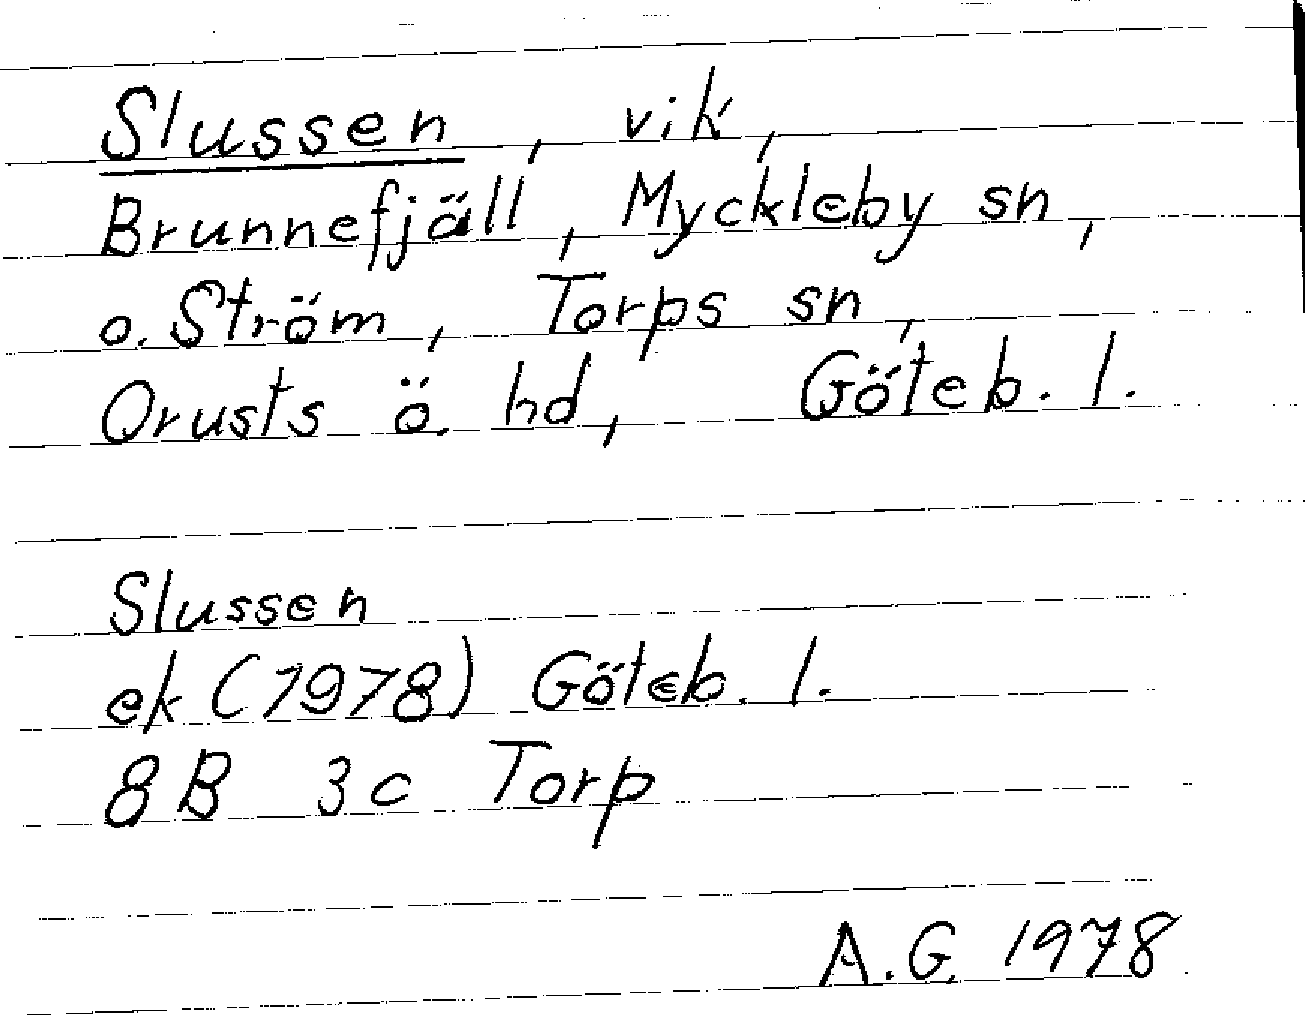 Slussen, vik,
Brunnefjäll, Myckleby sn,
o. Ström, Torps sn,
Orusts ö. hd, Göteb. l.
Slussen
ek (1978) Göteb. l.
8B 3c Torp
A.G. 1978